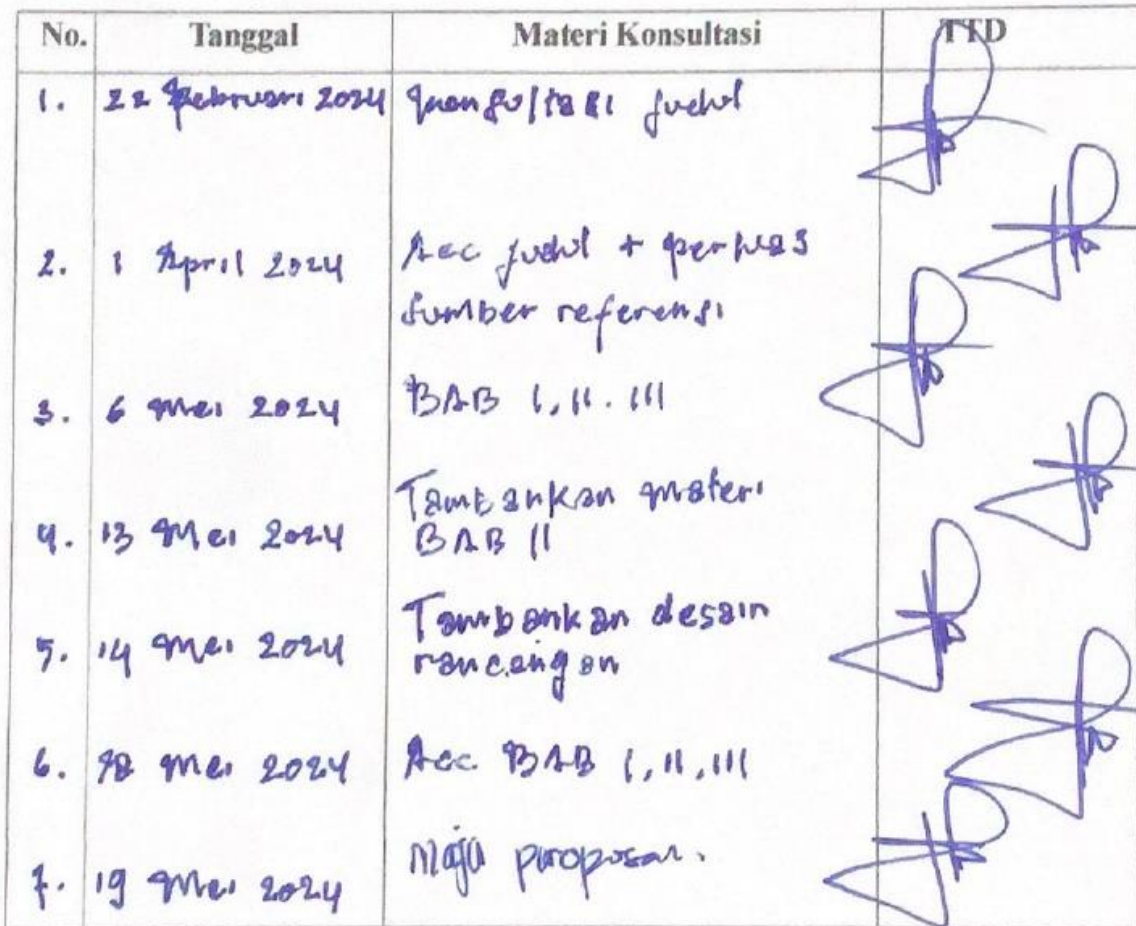 No. Tanggal Materi Konsultasi TTD
1. 22 Februari 2024 Konsultasi judul
2. 1 April 2024 Acc judul + perluas
sumber referensi
3. 6 Mei 2024 BAB I, II. III
Tambahkan materi
4. 13 Mei 2024 BAB II
Tambahkan desain
5. 14 Mei 2024 rancangan
6. 18 Mei 2024 Acc BAB I, II, III
7. 19 Mei 2024 Maju proposal.